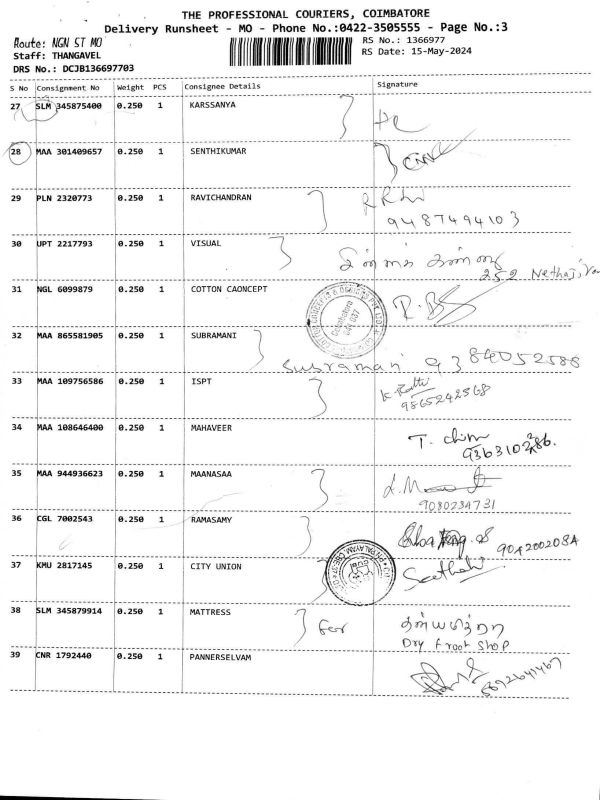 THE PROFESSIONAL COURIERS, COIMBATORE
Delivery Runsheet - MO - Phone No.:0422-3505555 - Page No.:3
Route: NGN ST MO
RS No.: 1366977
Staff: THANGAVEL
RS Date: 15-May-2024
DRS No.: DCJB136697703
S No Consignment No Weight PCS Consignee Details Signature
27 SLM 345875400 0.250 1 KARSSANYA
28 MAA 301409657 0.250 1 SENTHIKUMAR
29 PLN 2320773 0.250 1 RAVICHANDRAN
9487494103
30 UPT 2217793 0.250 1 VISUAL
252 Nethaji
31 NGL 6099879 0.250 1 COTTON CAONCEPT
32 MAA 865581905 0.250 1 SUBRAMANI
Subramani 9384052588
33 MAA 109756586 0.250 1 ISPT
9865242568
34 MAA 108646400 0.250 1 MAHAVEER
35 MAA 944936623 0.250 1 MAANASAA
9080234731
36 CGL 7002543 0.250 1 RAMASAMY
9042002084
37 KMU 2817145 0.250 1 CITY UNION
38 SLM 345879914 0.250 1 MATTRESS
for
Dry Froot Shop
39 CNR 1792440 0.250 1 PANNERSELVAM